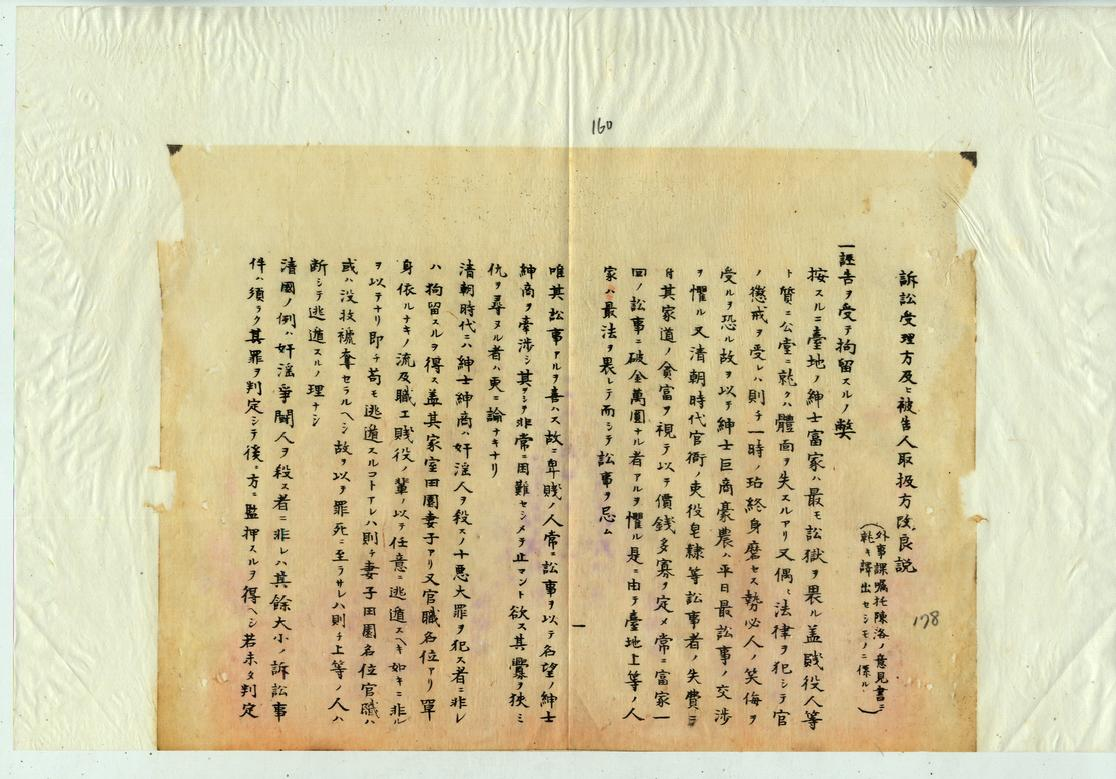 160
178
訴訟受理方及ヒ被告人取扱方改良説
(外事課嘱托陳洛ノ意見書ニ
乾キ譯出セシモノニ係ル)
一誣告ヲ受テ拘留スルノ弊
按スルニ臺地ノ紳士富家ハ最モ訟獄ヲ畏ル蓋賤役人等
ト質ニ公堂ニ就クハ體面ヲ失スルアリ又偶々法律ヲ犯シテ官
ノ懲戒ヲ受レハ則チ一時ノ玷終身磨セス勢必人ノ笑侮ヲ
受ルヲ恐ル故ヲ以テ紳士巨商豪農ハ平日最訟事ノ交渉
ヲ懼ル又清朝時代官衙ノ吏役皂隷等訟事者ノ失費ヲ
其家道ノ貧富ヲ視テ以テ價錢多寡ヲ定メ常ニ富家一
回ノ訟事ニ破金萬圓ナル者アルヲ懼ル是ニ由テ臺地上等ノ人
家ハ最法ヲ畏レテ而シテ訟事ヲ忌ム
一
唯其訟事アルヲ喜ハス故ニ卑賤ノ人常ニ訟事ヲ以テ名望ノ紳士
紳商ヲ牽渉シ其ヲシテ非常ニ困難セシメテ止マント欲ス其釁ヲ挾ミ
仇ヲ尋ヌル者ハ更ニ論ナキナリ
清朝時代ニハ紳士紳商ハ奸淫人ヲ殺スノ十悪大罪ヲ犯ス者ニ非レ
ハ拘留スルヲ得ス蓋其家室田園妻子アリ又官職名位アリ單
身依ルナキノ流及職工賤役ノ輩ノ以テ任意ニ逃遁スヘキ如キニ非ル
ヲ以テナリ即チ苟モ逃遁スルコトアレハ則チ妻子田園名位官職ハ
或ハ没收褫奪セラルヘシ故ヲ以テ罪死ニ至ラサレハ則チ上等ノ人ハ
断シテ逃遁スルノ理ナシ
清國ノ例ハ奸淫爭鬪人ヲ殺ス者ニ非レハ其餘大小ノ訴訟事
件ハ須ラク其罪ヲ判定シテ後ニ方ニ監押スルヲ得ヘシ若未タ判定